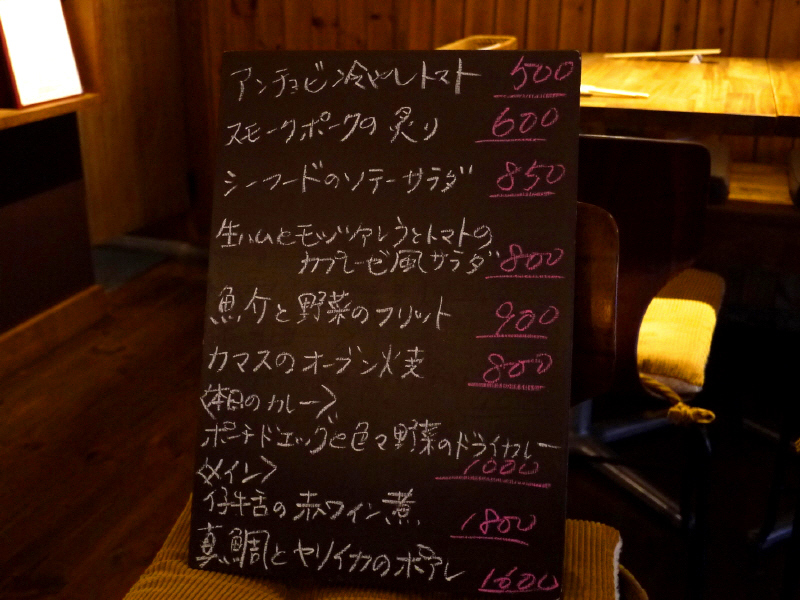 アンチョビ冷やしトマト 500
スモークポークの炙り 600
シーフードのソテーサラダ 850
生ハムとモッツァレラとトマトの
カプレーゼ風サラダ 800
魚介と野菜のフリット 900
カマスのオーブン焼 800
〈本日のカレー〉
ポーチドエッグと色々野菜のドライカレー
〈メイン〉 1000
仔牛舌の赤ワイン煮 1800
真鯛とヤリイカのポアレ 1600